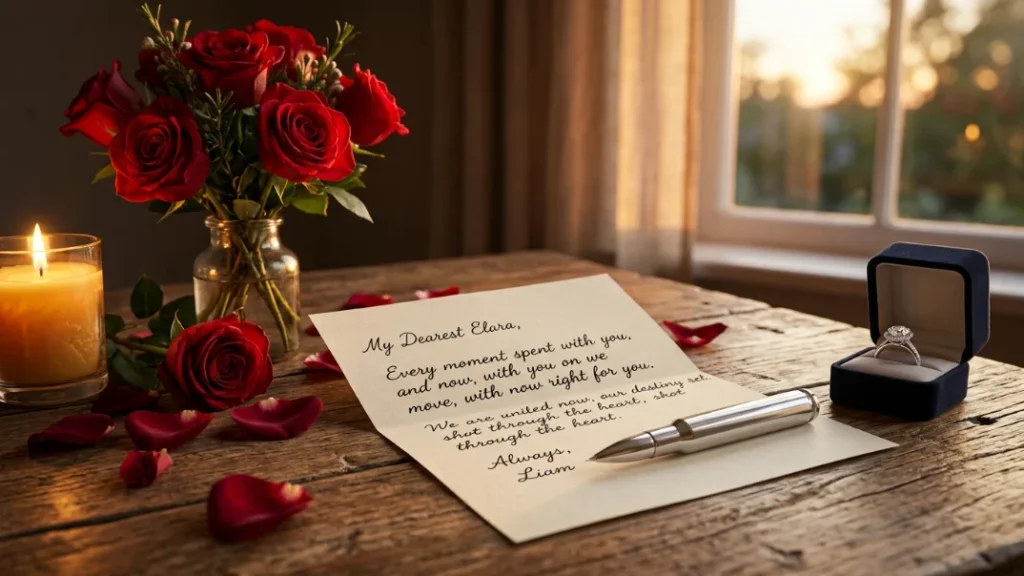 My Dearest Elara,
Every moment spent with you,
and now, with you on we
move, with now right for you.
We are united now, our destiny set
shot through the heart, shot
through the heart.
Always,
Liam